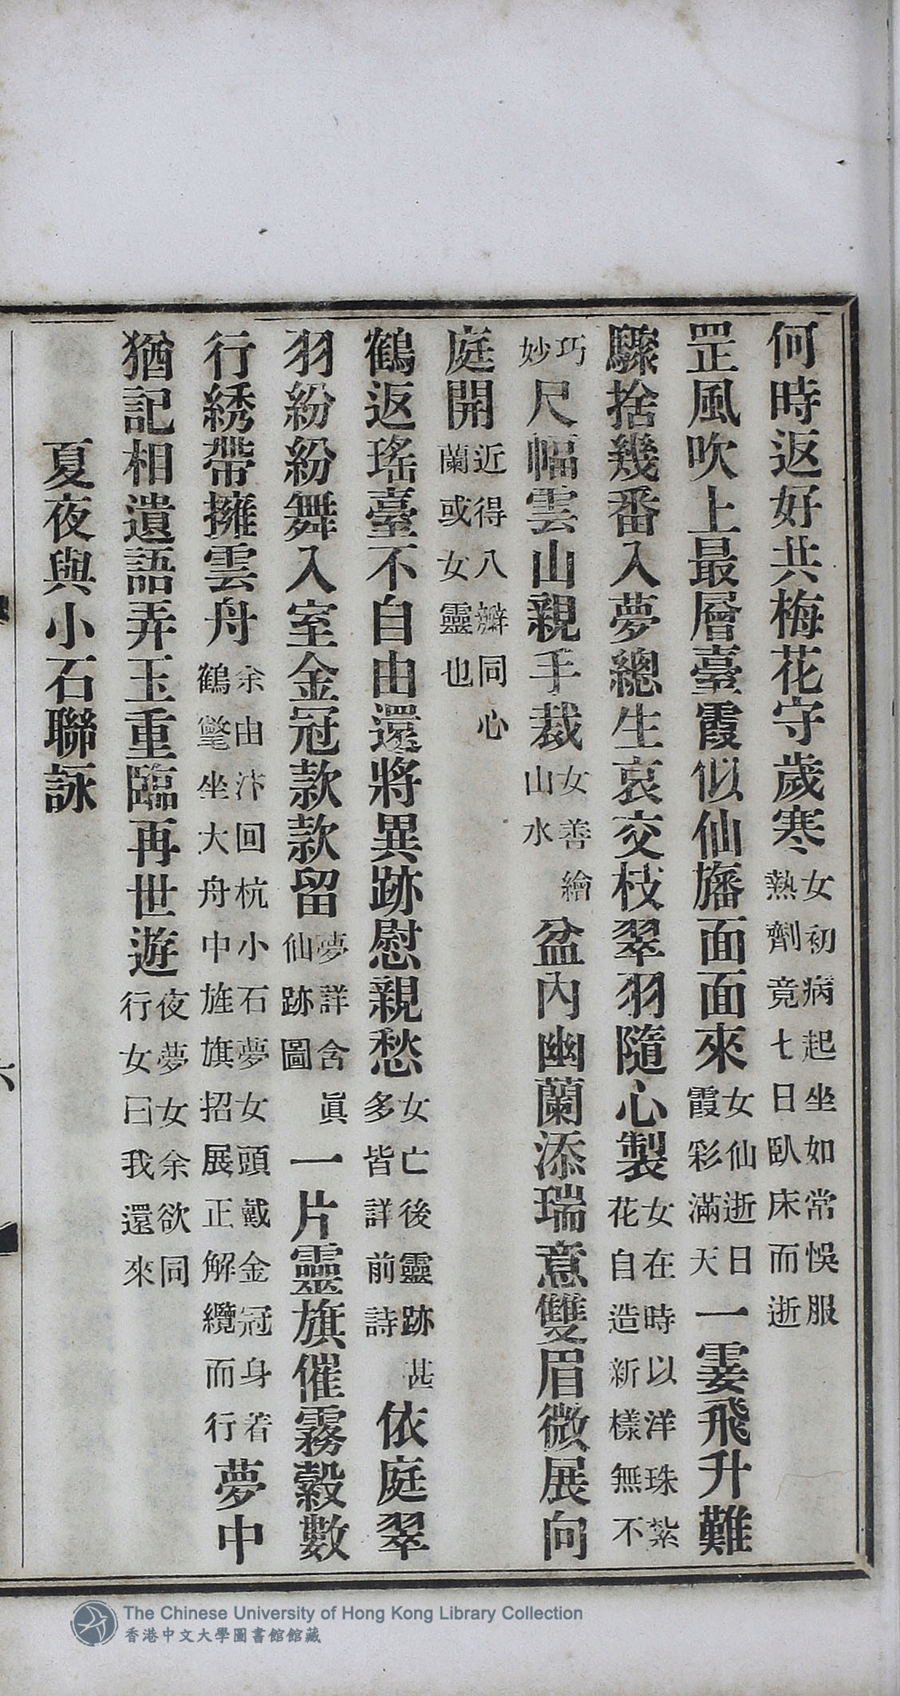 何時返好共梅花守歲寒女初病起坐如常悞服熱劑竟七日臥床而逝
罡風吹上最層臺霞似仙旛面面來女仙逝日霞彩滿天一霎飛升難
驟捨幾番入夢總生哀交枝翠羽隨心製女在時以洋珠紮花自造新樣無不
巧妙尺幅雲山親手裁女善繪山水盆內幽蘭添瑞意雙眉微展向
庭開近得八瓣同心蘭或女靈也
鶴返瑤臺不自由還將異跡慰親愁女亡後靈跡甚多皆詳前詩依庭翠
羽紛紛舞入室金冠款款留夢詳含眞仙跡圖一片靈旗催霧縠數
行綉帶擁雲舟余由汴回杭小石夢女頭戴金冠身着鶴氅坐大舟中旌旗招展正解纜而行夢中
猶記相遺語弄玉重臨再世遊夜夢女余欲同行女曰我還來
夏夜與小石聯詠
六
The Chinese University of Hong Kong Library Collection
香港中文大學圖書館館藏